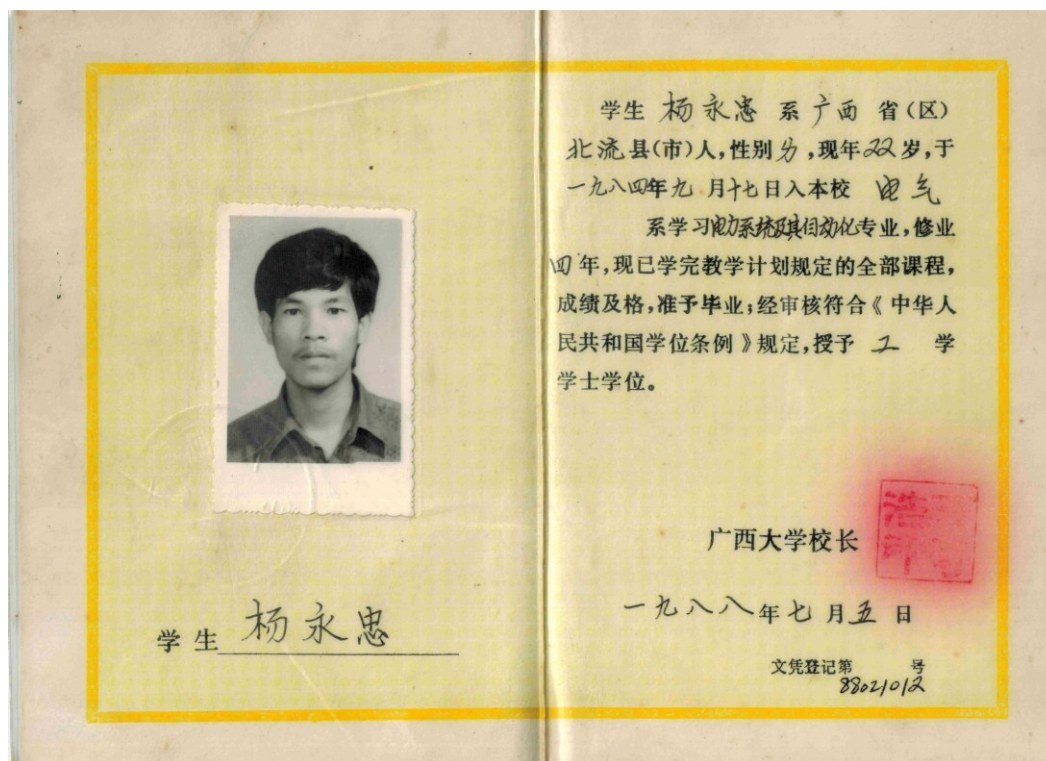 学生 杨永忠
学生 杨永忠 系 广西 省(区)
北流县(市)人,性别男,现年22岁,于
一九八四年九月十七日入本校 电气
系学习电力系统及其自动化专业,修业
四年,现已学完教学计划规定的全部课程,
成绩及格,准予毕业;经审核符合《中华人
民共和国学位条例》规定,授予 工 学
学士学位。
广西大学校长
一九八八年七月五日
文凭登记第 号
88021012